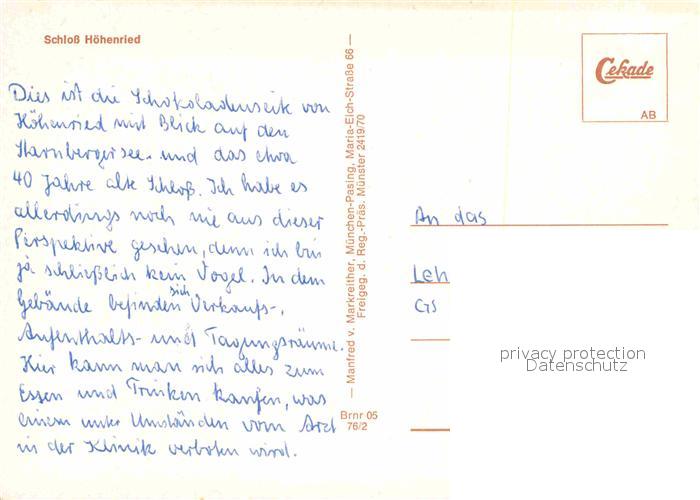 Schloß Höhenried
Dies ist die Schokoladenseite von
Höhenried mit Blick auf den
Starnbergersee. und das etwa
40 Jahre alte Schloß. Ich habe es
allerdings noch nie aus dieser
Perspektive gesehen, denn ich bin
ja schließlich kein Vogel. In dem
Gebäude befinden sich Verkaufs-,
Aufenthalts- und Tagungsräume.
Hier kann man sich alles zum
Essen und Trinken kaufen, was
einem unter Umständen vom Arzt
in der Klinik verboten wird.
— Manfred v. Markreither, München-Pasing, Maria-Eich-Straße 66 —
Freigeg. d. Reg.-Präs. Münster 2419/70
Brnr 05
76/2
Cekade
AB
An das
Leh
GS
privacy protection
Datenschutz